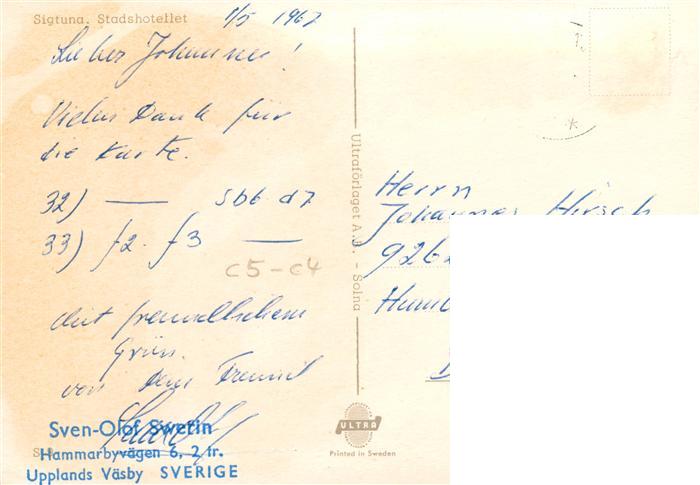 Sigtuna. Stadshotellet
1/5 1967
Lieber Johannes!
Vielen Dank für
die Karte.
32) — Sb6-d7
33) f2-f3 —
c5-c4
Mit freundlichem
Gruss
von dem Freund
Sven-Olof Swetin
Hammarbyvägen 6, 2 tr.
Upplands Väsby SVERIGE
Ultraförlaget A.B. - Solna
Herrn
Johannes Hirsch
926
ULTRA
Printed in Sweden